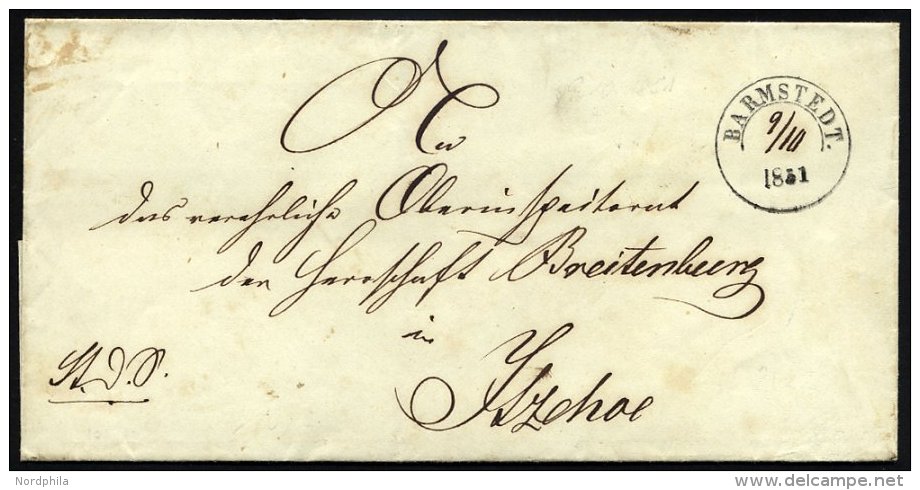 An
BARMSTEDT.
9/10
1851
das verehrliche Oberinspectorat
der Herrschaft Breitenburg
in
St. d. S.
Itzehoe
Nordphila
delcampe.net